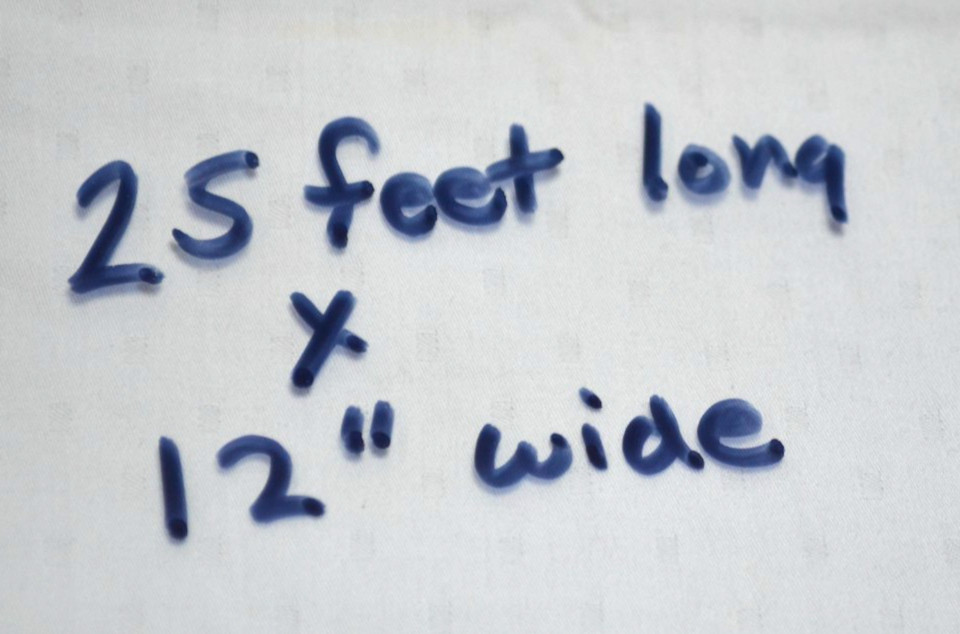 25 feet long
x
12" wide